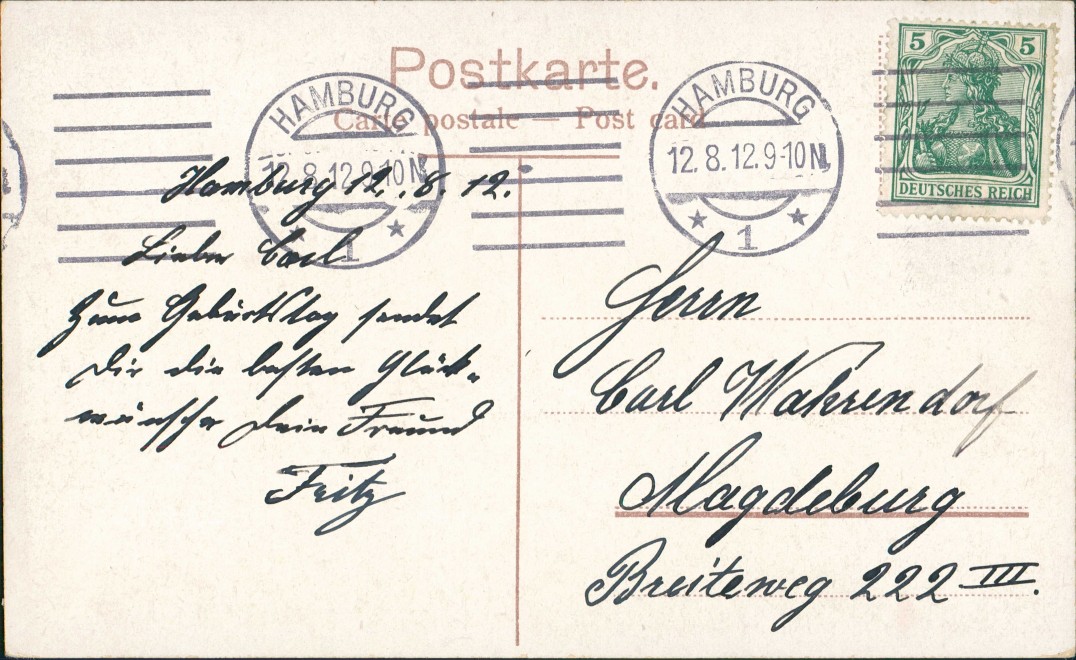 Postkarte.
Carte postale — Post card
HAMBURG
12.8.12.9-10N
1
HAMBURG
12.8.12.9-10N
1
5 5
DEUTSCHES REICH
Hamburg 12. 8. 12.
Lieber Carl
Zum Geburtstag sendet
Dir die besten Glück-
wünsche Dein Freund
Fritz
Herrn
Carl Wahrendorf
Magdeburg
Breiteweg 222 III.